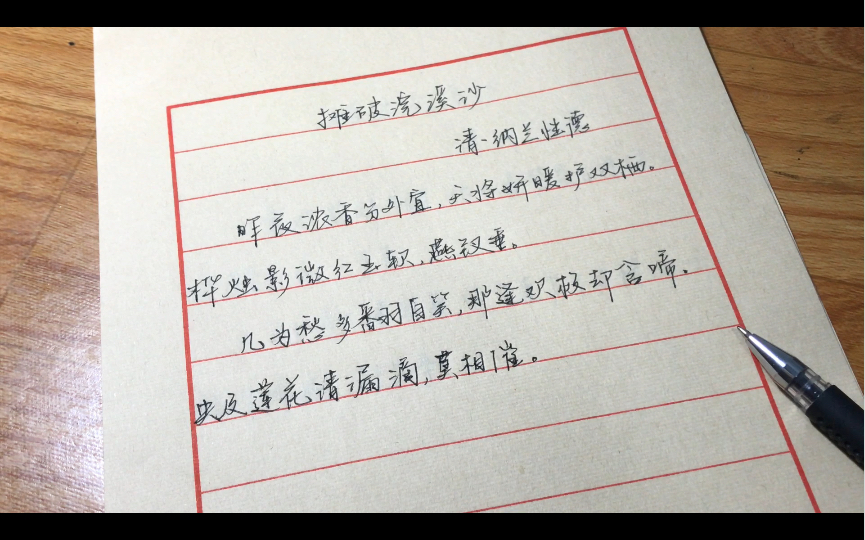 摊破浣溪沙
清·纳兰性德
昨夜浓香分外宜,天将妍暖护双栖。
桦烛影微红玉软,燕钗垂。
几为愁多翻自笑,那逢欢极却含啼。
央及莲花清漏滴,莫相催。